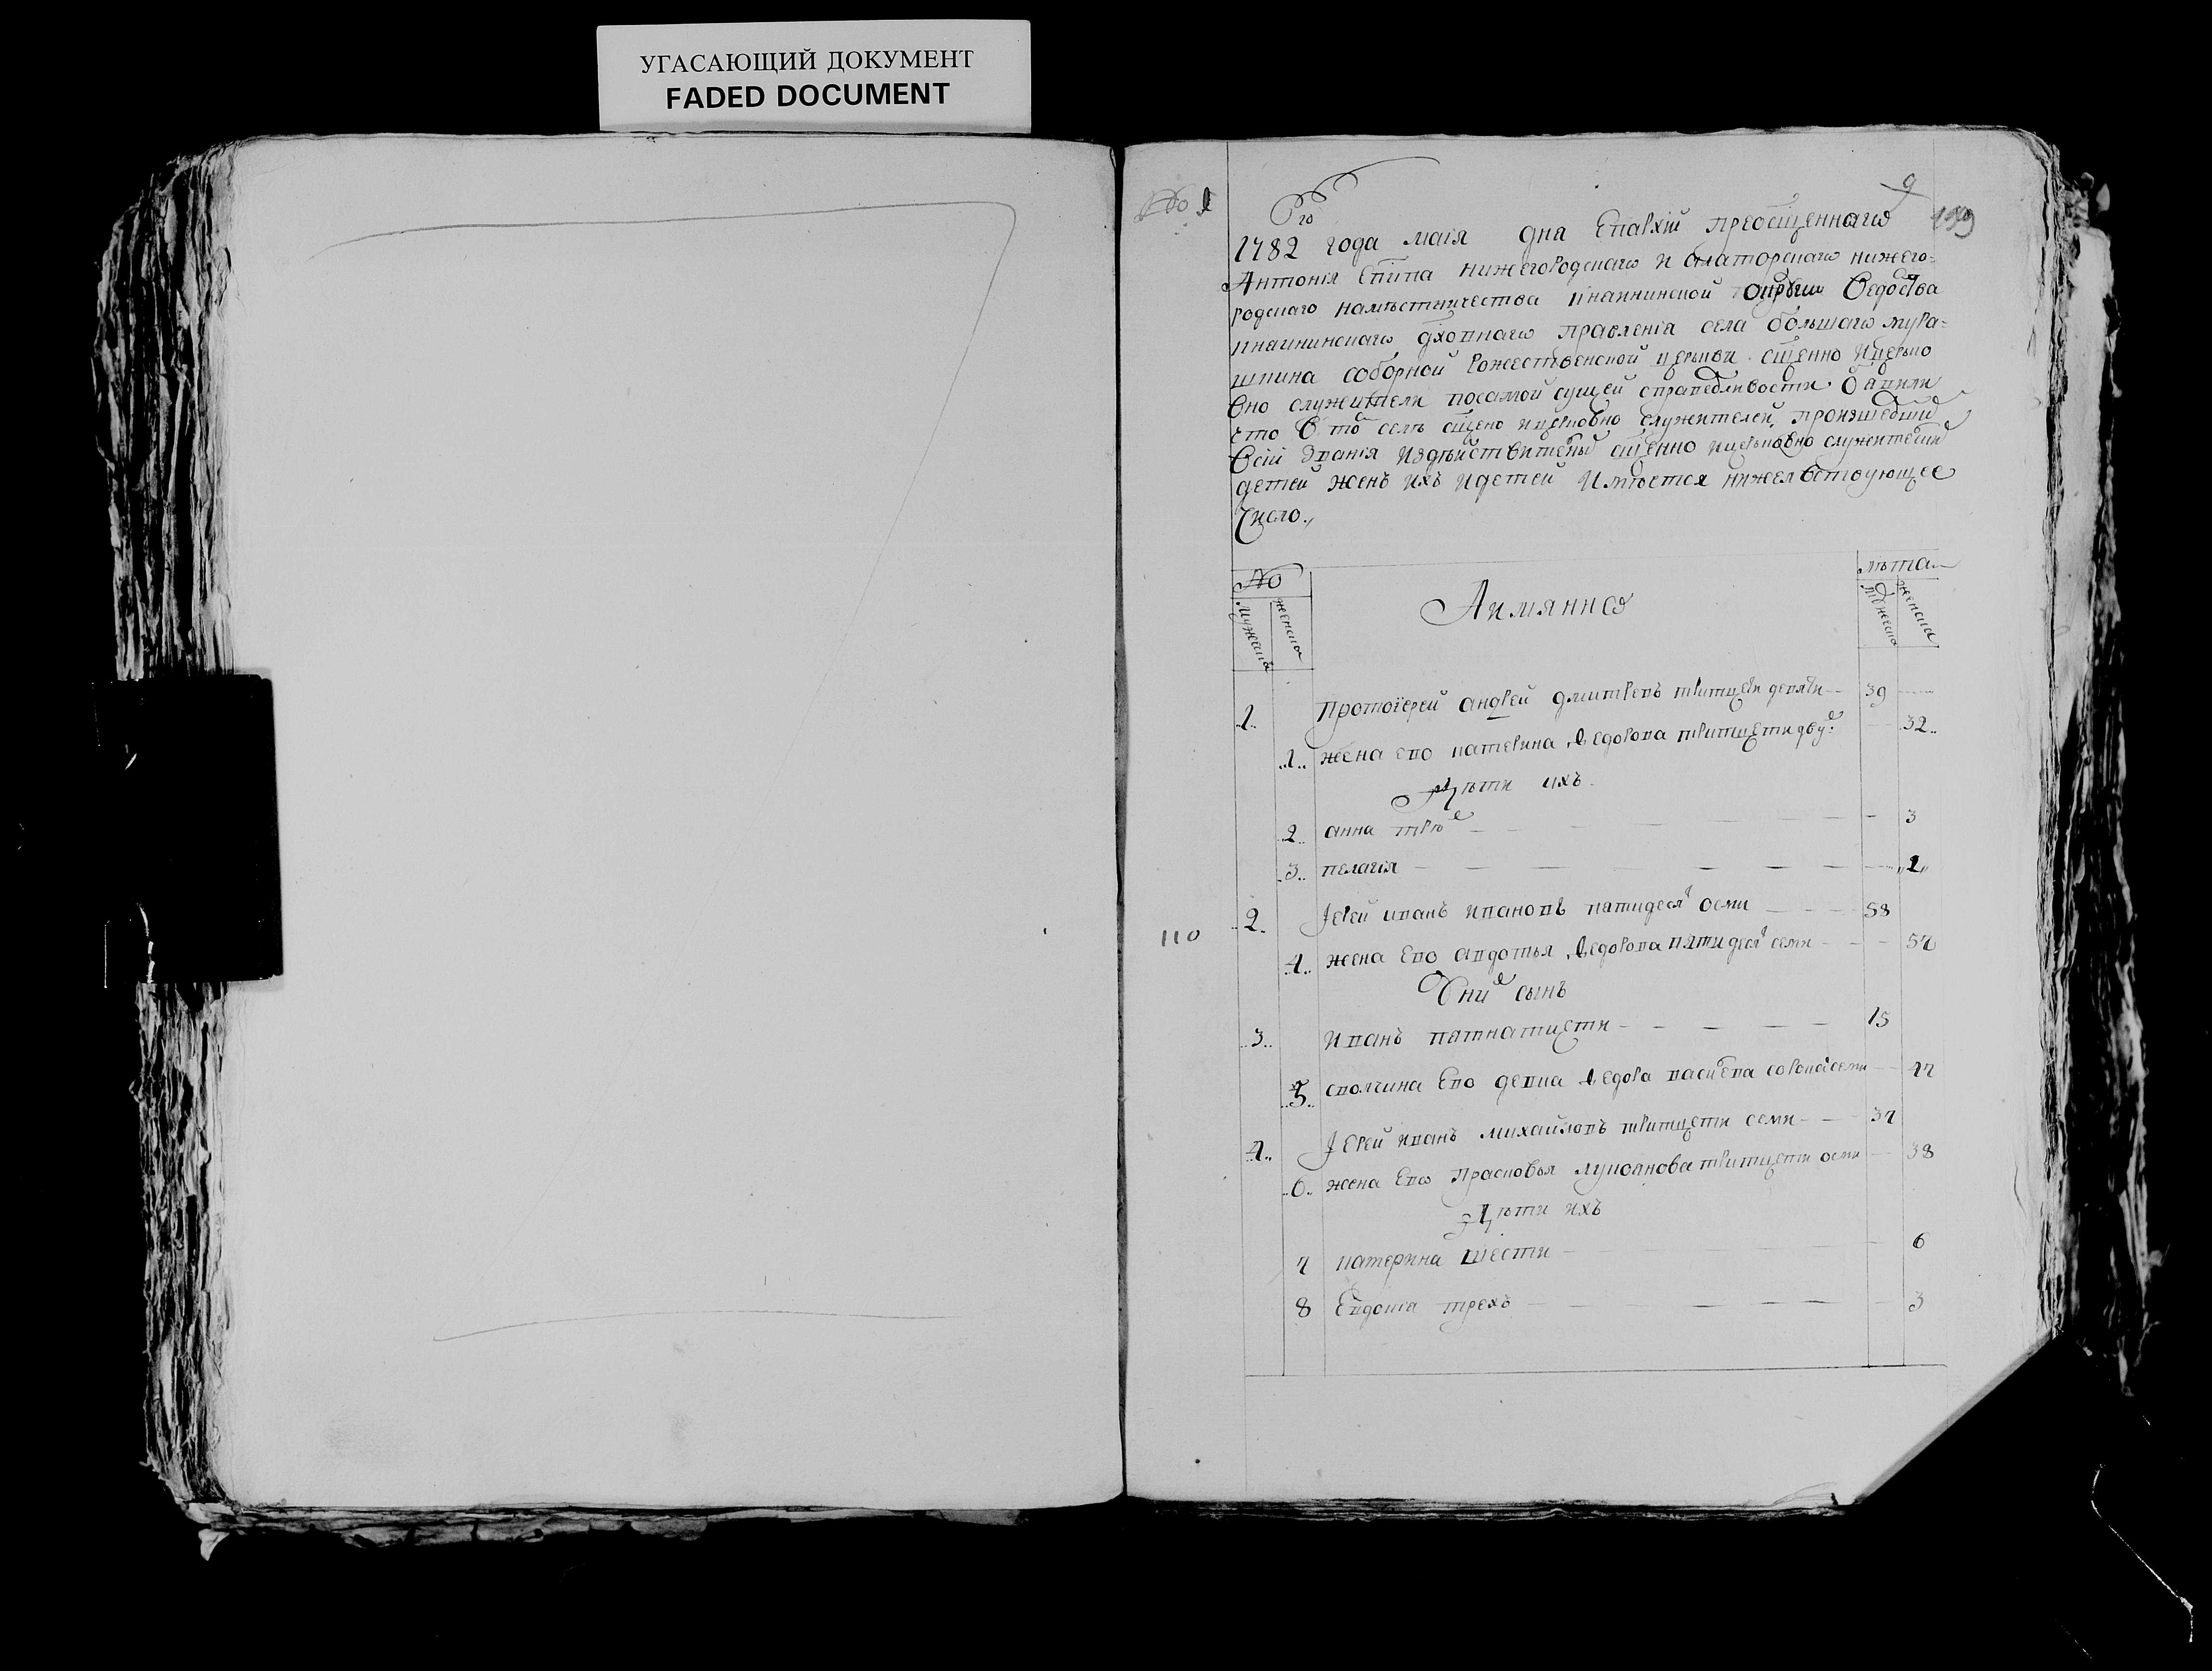 УГАСАЮЩИЙ ДОКУМЕНТ
FADED DOCUMENT
No 1
9
159
1782 года маія дна Епархіи преосщеннагω
Антонія Епіпа нижегородскагω и алаторскагω нижего=
родскаго намѣстничества
кнагининскагω дховнагω правленія села большагω мура=
шкина соборной рожественской церкви сщенно ицерко
вно служители посамой сущей справедливости
что сщено ицерковно служителей произшедши
званія издѣйствител сщенно ицерковно служител
детей женъ ихъ идетей имѣется нижеявствующее
число.,
No
мужеска
женска
Аимянно
лѣта
мужеска
женска
1. протоіерей андрей дмитревъ тритцети девяти 39
1. жена ево катерина ѳедорова тритцетидву 32
дѣти ихъ
2. анна трю 3
3. пелагія 1
110
2. Іерей иванъ ивановъ пятидесят осми 58
4. жена Ево авдотья ѳедорова пятидесят семи 57
Уни сынъ
3. иванъ пятнатцети 15
5. своячина Ево девка ѳедора васи ева сорока семи 47
4. Іерей иванъ михайловъ тритцети семи 37
6. жена Евω Прасковья лукоянова тритцети осми 38
дѣти ихъ
7 катерина шести 6
8 Евдокиа трехъ 3